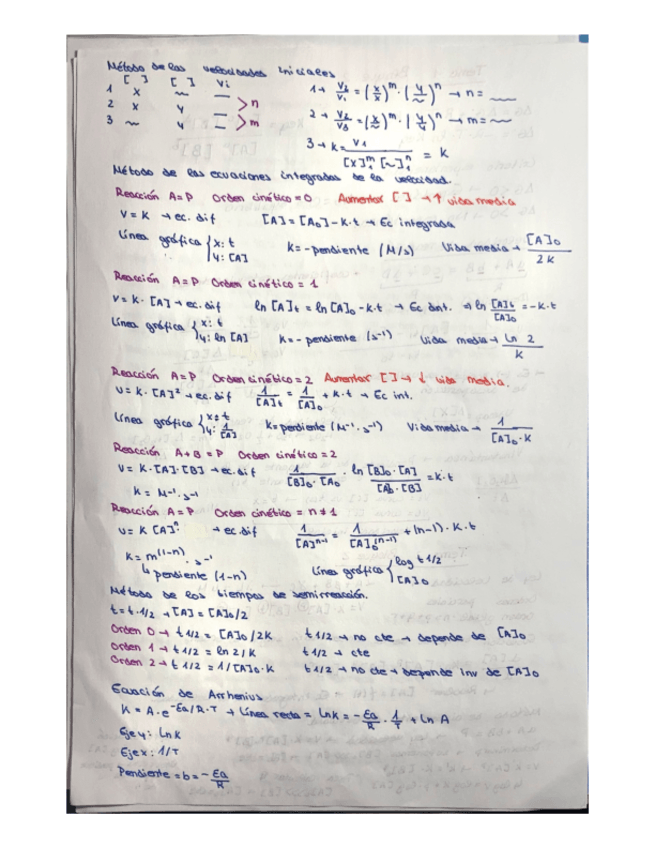 Método de las velocidades iniciales
[ ] [ ] Vi
1 x ~ — 1→ V2/V1 = (x/x)^m · (y/~)^n → n = ~
2 x y — >n 2→ V2/V3 = (x/~)^m · (y/y)^n → m = ~
3 ~ y — >m
3→ k = V1/[x]₁^m [~]₁^n = k
Método de las ecuaciones integradas de la velocidad.
Reacción A=P Orden cinético = 0 Aumentar [ ] → ↑ vida media
V = K → ec. dif [A] = [A₀] - K·t → Ec integrada
Línea gráfica { x: t y: [A] K = - pendiente (M/s) Vida media → [A]₀/2K
Reacción A=P Orden cinético = 1
V = K · [A] → ec. dif ln [A]t = ln [A]₀ - K·t → Ec int. → ln [A]t/[A]₀ = -K·t
Línea gráfica { x: t y: ln [A] K = - pendiente (s⁻¹) Vida media → ln 2/K
Reacción A=P Orden cinético = 2 Aumentar [ ] → ↓ vida media.
V = K · [A]² → ec. dif 1/[A]t = 1/[A]₀ + K·t → Ec int.
Línea gráfica { x: t y: 1/[A] K = pendiente (M⁻¹·s⁻¹) Vida media → 1/[A]₀·K
Reacción A+B=P Orden cinético = 2
V = K·[A]·[B] → ec. dif 1/[B]₀·[A]₀ · ln [B]₀·[A]/[A]₀·[B] = K·t
K = M⁻¹·s⁻¹
Reacción A=P Orden cinético = n≠1
V = K [A]^n → ec. dif 1/[A]^n-1 = 1/[A]₀^(n-1) + (n-1)·K·t
K = m^(1-n) · s⁻¹ Línea gráfica { log t1/2 [A]₀
↳ pendiente (1-n)
Método de los tiempos de semirreacción.
t = t·1/2 → [A] = [A]₀/2
Orden 0 → t1/2 = [A]₀/2K t1/2 → no cte → depende de [A]₀
Orden 1 → t1/2 = ln 2/K t1/2 → cte
Orden 2 → t1/2 = 1/[A]₀·K t1/2 → no cte → depende inv de [A]₀
Ecuación de Arrhenius
K = A·e^-Ea/R·T → Línea recta = lnK = - Ea/R · 1/T + ln A
Eje y: LnK
Eje x: 1/T
Pendiente = b = - Ea/R